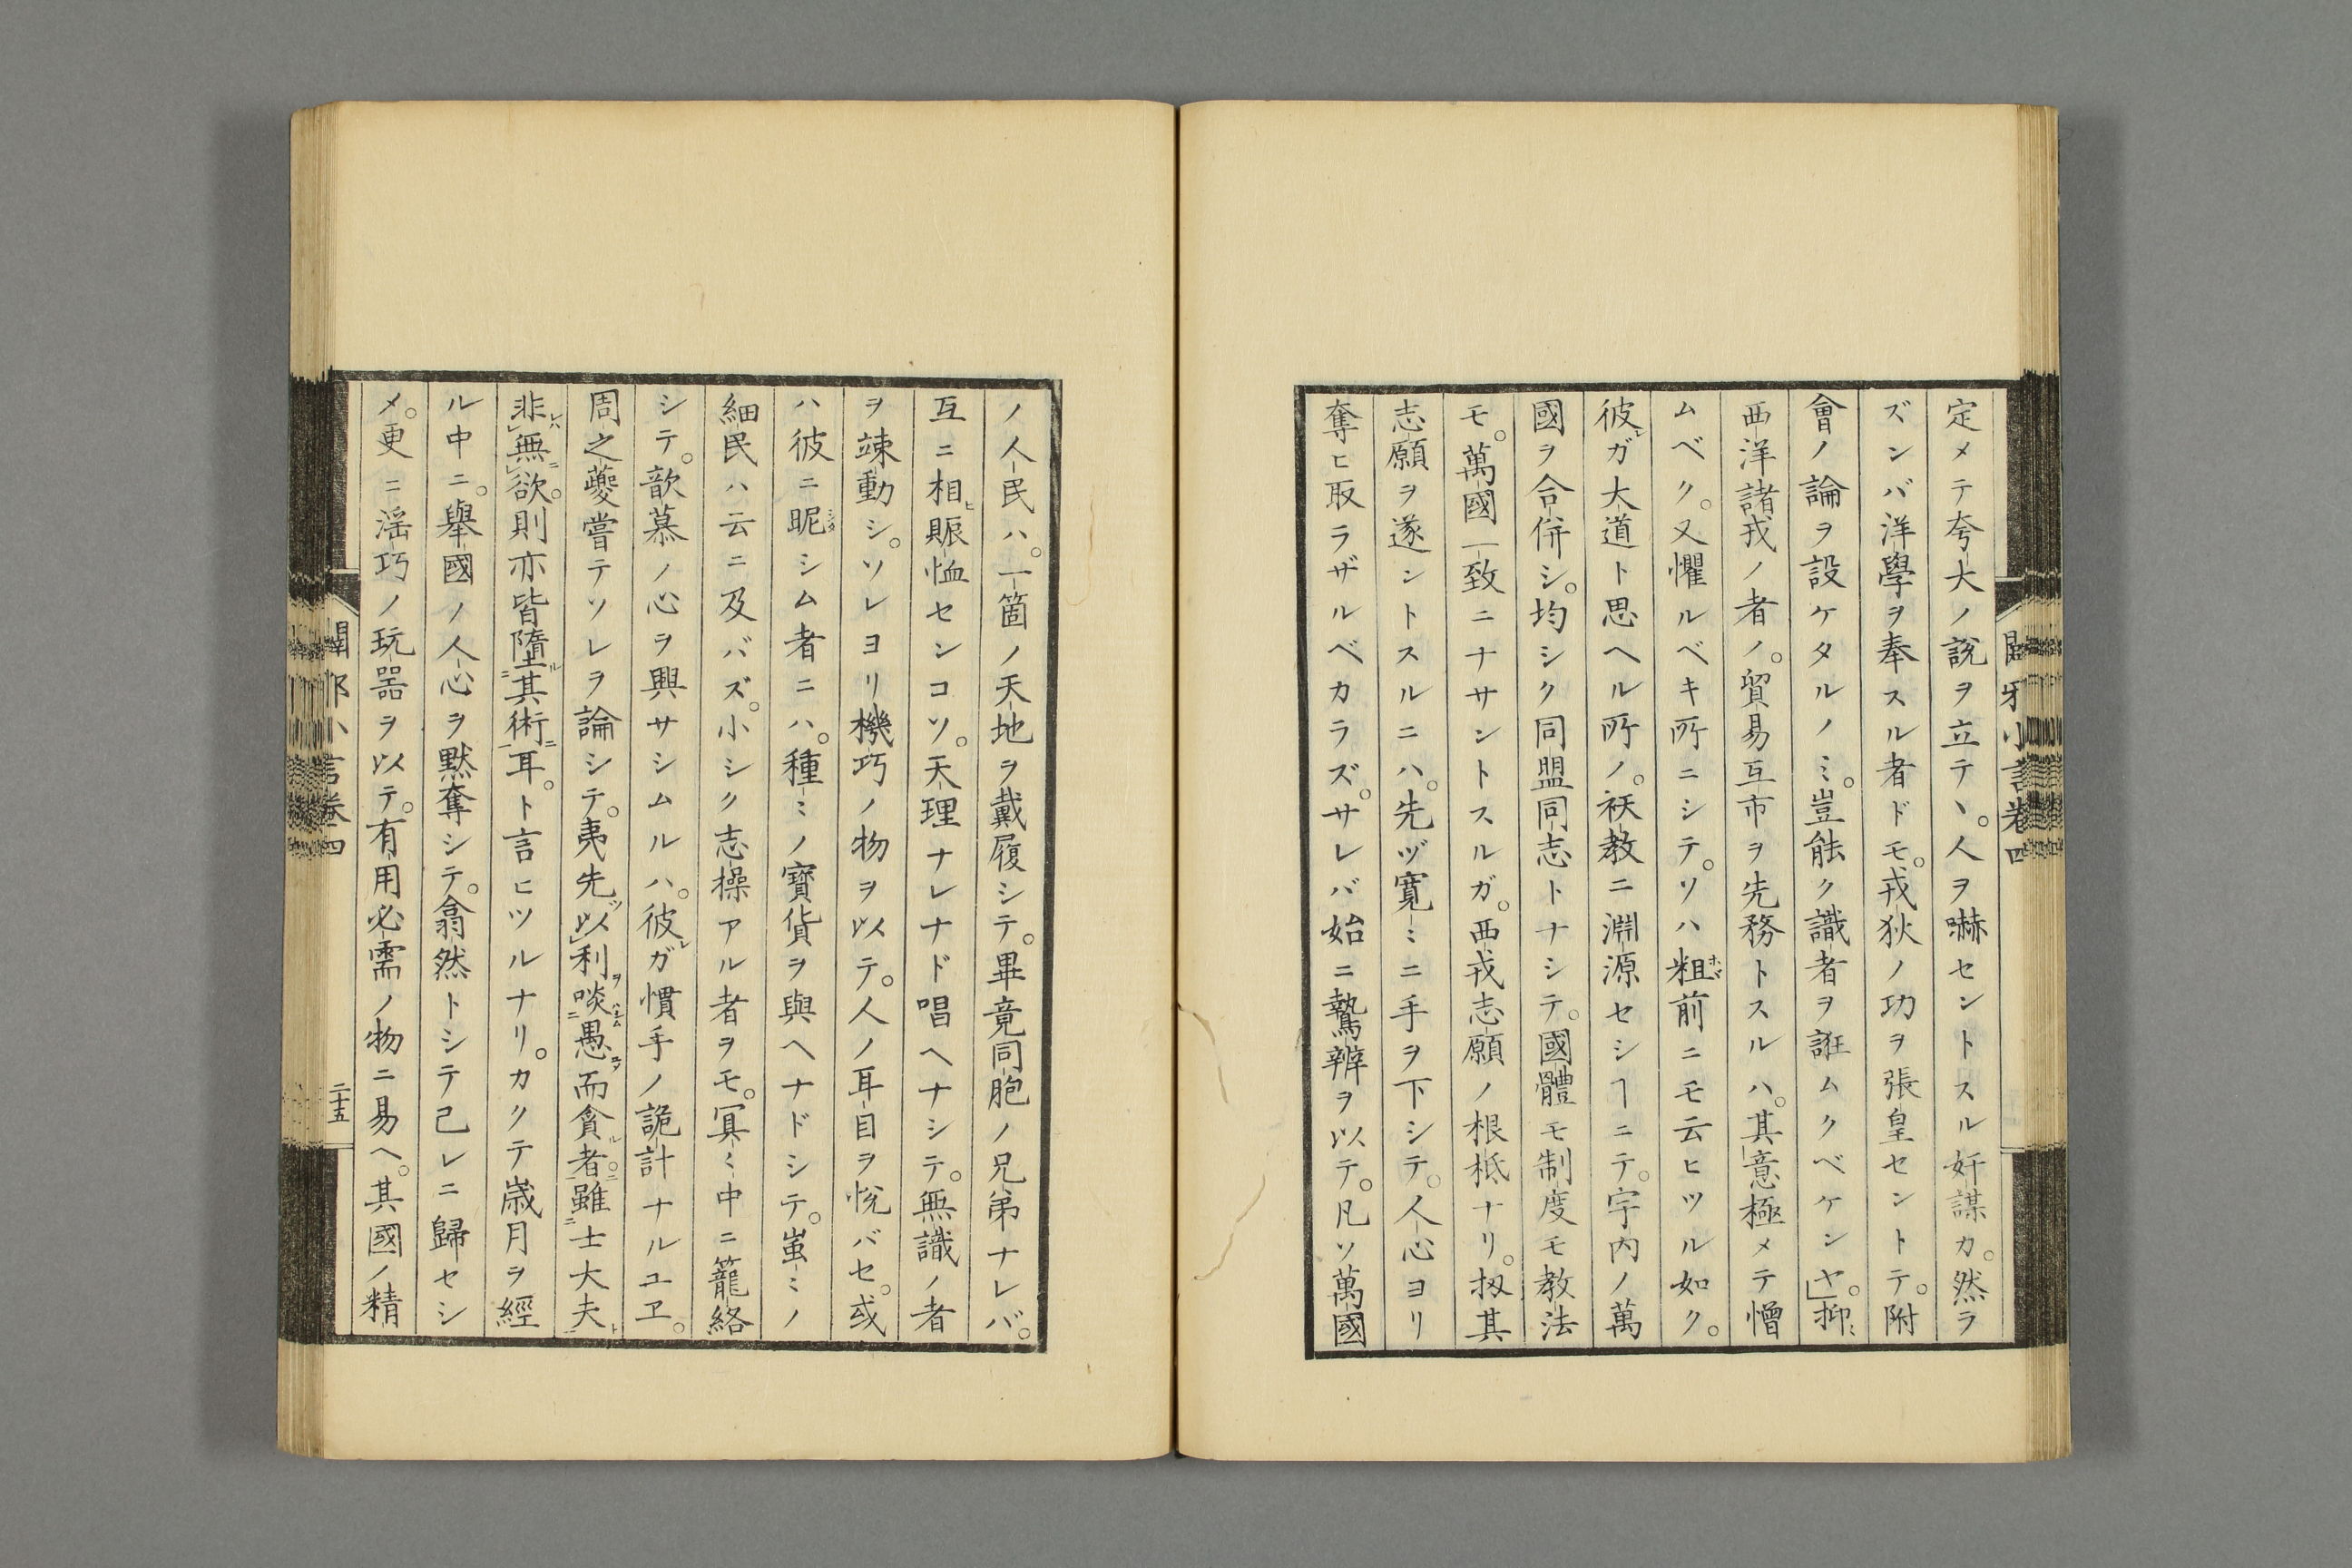 定メテ夸大ノ說ヲ立テヽ。人ヲ嚇セントスル奸謀カ。然ラ
ズンバ洋學ヲ奉スル者ドモ。戎狄ノ功ヲ張皇セントテ。附
會ノ論ヲ設ケタルノミ。豈能ク識者ヲ誑ムクベケンヤ。」抑〻
西洋諸戎ノ者ノ。貿易互市ヲ先務トスルハ。其意極メテ憎
ムベク。又懼ルベキ所ニシテ。ソハ粗前ニモ云ヒツル如ク。
彼レガ大道ト思ヘル所ノ。祅教ニ淵源セシヿニテ。宇内ノ萬
國ヲ合併シ。均シク同盟同志トナシテ。國體モ制度モ教法
モ。萬國一致ニナサントスルガ。西戎志願ノ根柢ナリ。扨其
志願ヲ遂ントスルニハ。先ヅ寛〻ニ手ヲ下シテ。人心ヨリ
奪ヒ取ラザルベカラズ。サレバ始ニ鷙辨ヲ以テ。凡ソ萬國
ノ人民ハ。一箇ノ天地ヲ戴履シテ。畢竟同胞ノ兄弟ナレバ。
互ニ相ヒ賑恤センコソ。天理ナレナド唱ヘナシテ。無識ノ者
ヲ竦動シ。ソレヨリ機巧ノ物ヲ以テ。人ノ耳目ヲ悅バセ。或
ハ彼ニ昵シム者ニハ。種〻ノ寶貨ヲ與ヘナドシテ。蚩〻ノ
細民ハ云ニ及バズ。小シク志操アル者ヲモ。冥〻中ニ籠絡
シテ。歆慕ノ心ヲ興サシムルハ。彼レガ慣手ノ詭計ナルユヱ。
周之夔嘗テソレヲ論シテ。夷先以利啖愚而貪者。雖士大夫
非無欲。則亦皆墮其術耳。ト言ヒツルナリ。カクテ歳月ヲ經
ル中ニ。舉國ノ人心ヲ黙奪シテ。翕然トシテ己レニ歸セシ
メ。更ニ滛巧ノ玩器ヲ以テ。有用必需ノ物ニ易ヘ。其國ノ精
小言卷四
二十五